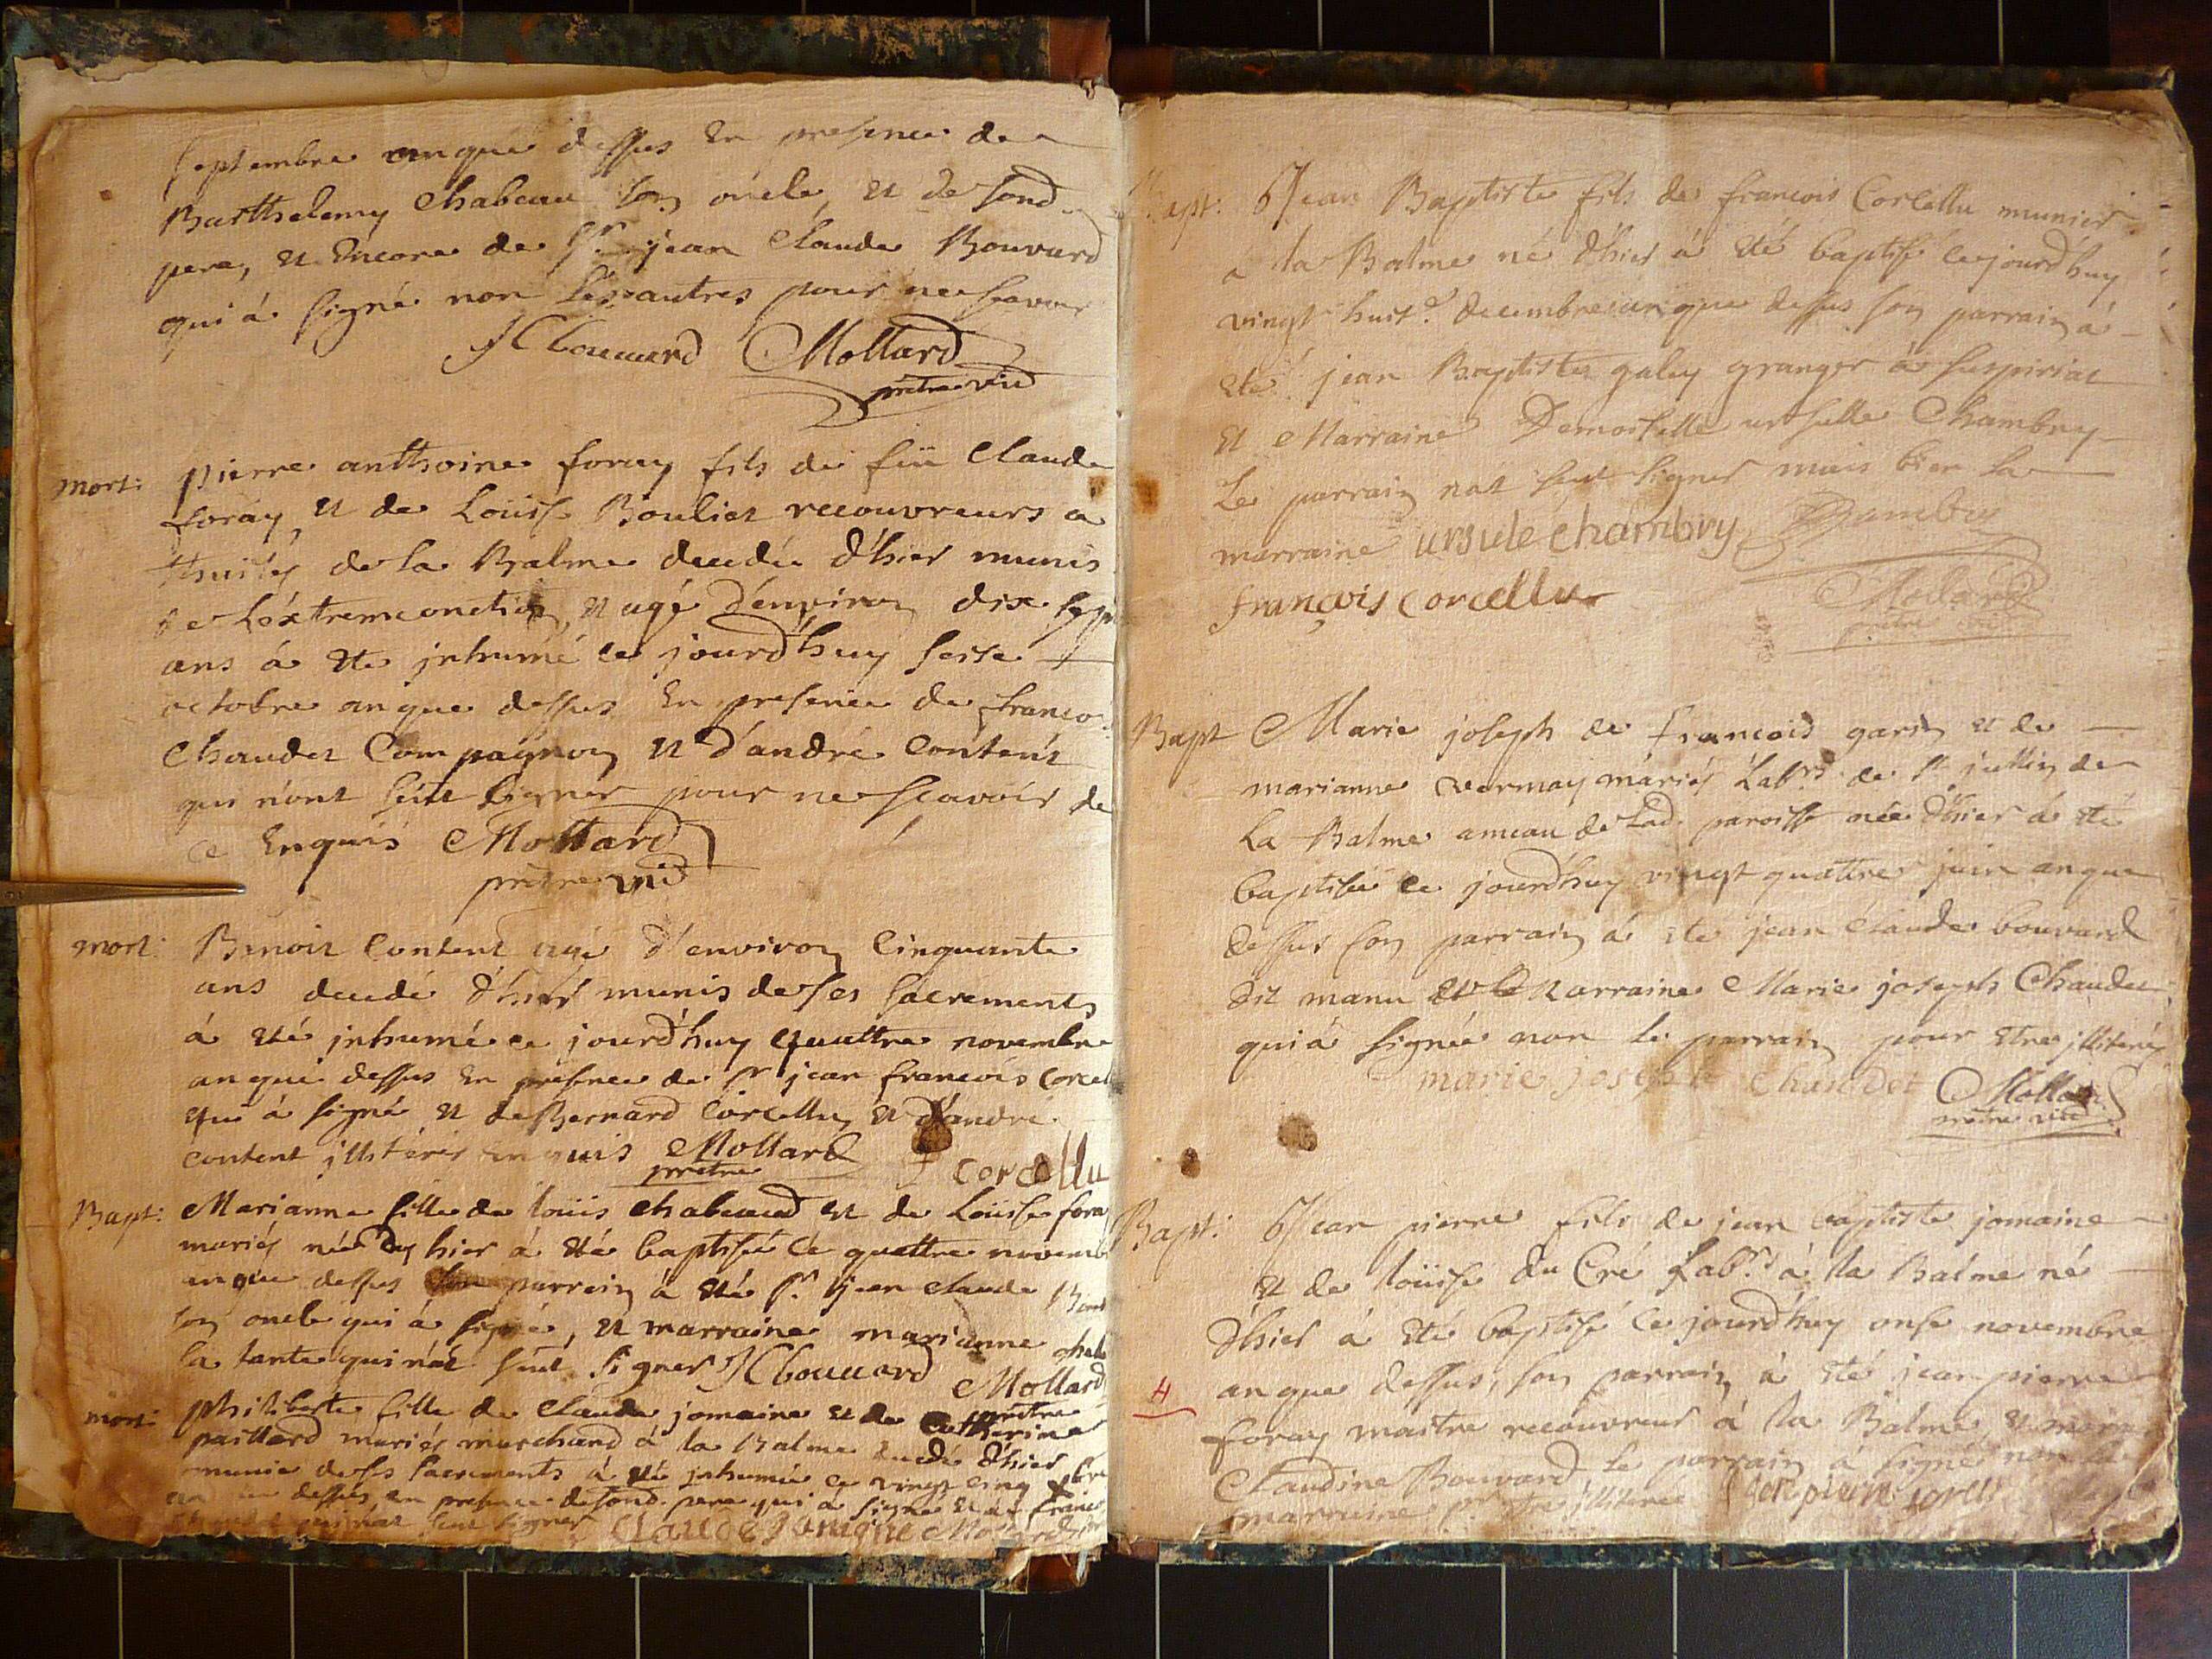 septembre an que dessus En presence de
Barthelemy Chabeau son oncle, et de sond.
pere, et Encore de Sr jean Claude Bouvard
qui á signé non les autres pour ne scavoir
JC bouuard Mollard
prêtre vic
mort: pierre anthoine foray fils de füe Claude
foray, et de Loüise Bouliet recouvreurs a
de la Balme decedée d'hier munis
de L'éxtremeonction, et agé d'environ dix sept
ans á ete jnhumé ce jourd'huy seise
octobre an que dessus En presence de françois
Chaudet Compagnon et d'andré Content
qui n'ont seüt signer pour ne scavoir de
ce Enquis Mollard
prêtre vic
mort: Benoit Content agé d'environ Cinquante
ans decedé d'hier munis de ses sacrements
á eté jnhumé ce jourd'huy quattre novembre
an que dessus en presence de sr jean françois Corcel
qui á signé et de Bernard Corcellu et d'andré
content jllitérés enquis Mollard
prêtre f corcellu
Bapt: Marianne fille de loüis chabeaud et de Loüise fora
mariés née d'hier á eté baptisée ce quattre novemb
an que dessus son parrain á eté sr. jean claude Bou
son oncle qui á signé, et marraine marianne chab
la tante qui n'at seut signer JC bouuard Mollard
prêtre
mort: philiberte fille de Claude jomaine et de Catherine
paillard mariés marchand á la Balme decedé d'hier
munie de ses sacrements á eté jnhumée ce vingt cinq
an que dessus, en presence de sond. pere qui a signé et de francois
qui n'at seut signer Claude Jomaine Mollard
Bapt: Jean Baptiste fils de francois Corcellu munier
a la Balme né d'hier á eté baptisé ce jourd'huy
vingt huite decembre an que dessus son parrain á
eté jean Baptiste galey granger á suspiriat
et Marraine Demoiselle ursulle Chambry
Le parrain n'at seut signer mais bien la
marraine ursule chambry Chambry
françois corcellu Mollard
prêtre vic
Bapt Marie joseph de francois garin et de
marianne vermay mariés Labrs. de st jullin de
La Balme ameau de Lad. paroisse née d'hier á eté
baptisée ce jourd'huy vingt quattre juin an que
dessus son parrain á eté jean claude bouvard
dit manu et Marraine Marie joseph Chaudet
qui á signée non le parrain pour etre jlliteré
marie josephe chaudet Mollard
prêtre vic
Bapt: Jean pierre fils de jean baptiste jomaine
et de loüise du Cré Labrs. á la Balme né
d'hier á eté baptisé ce jourd'huy onse novembre
4 an que dessus, son parrain á eté jean pierre
foray maitre recouvreur á la Balme, et marr
Claudine Bouvard, le parrain á signé non la
marraine pr. etre jlliterée jean pierre forey